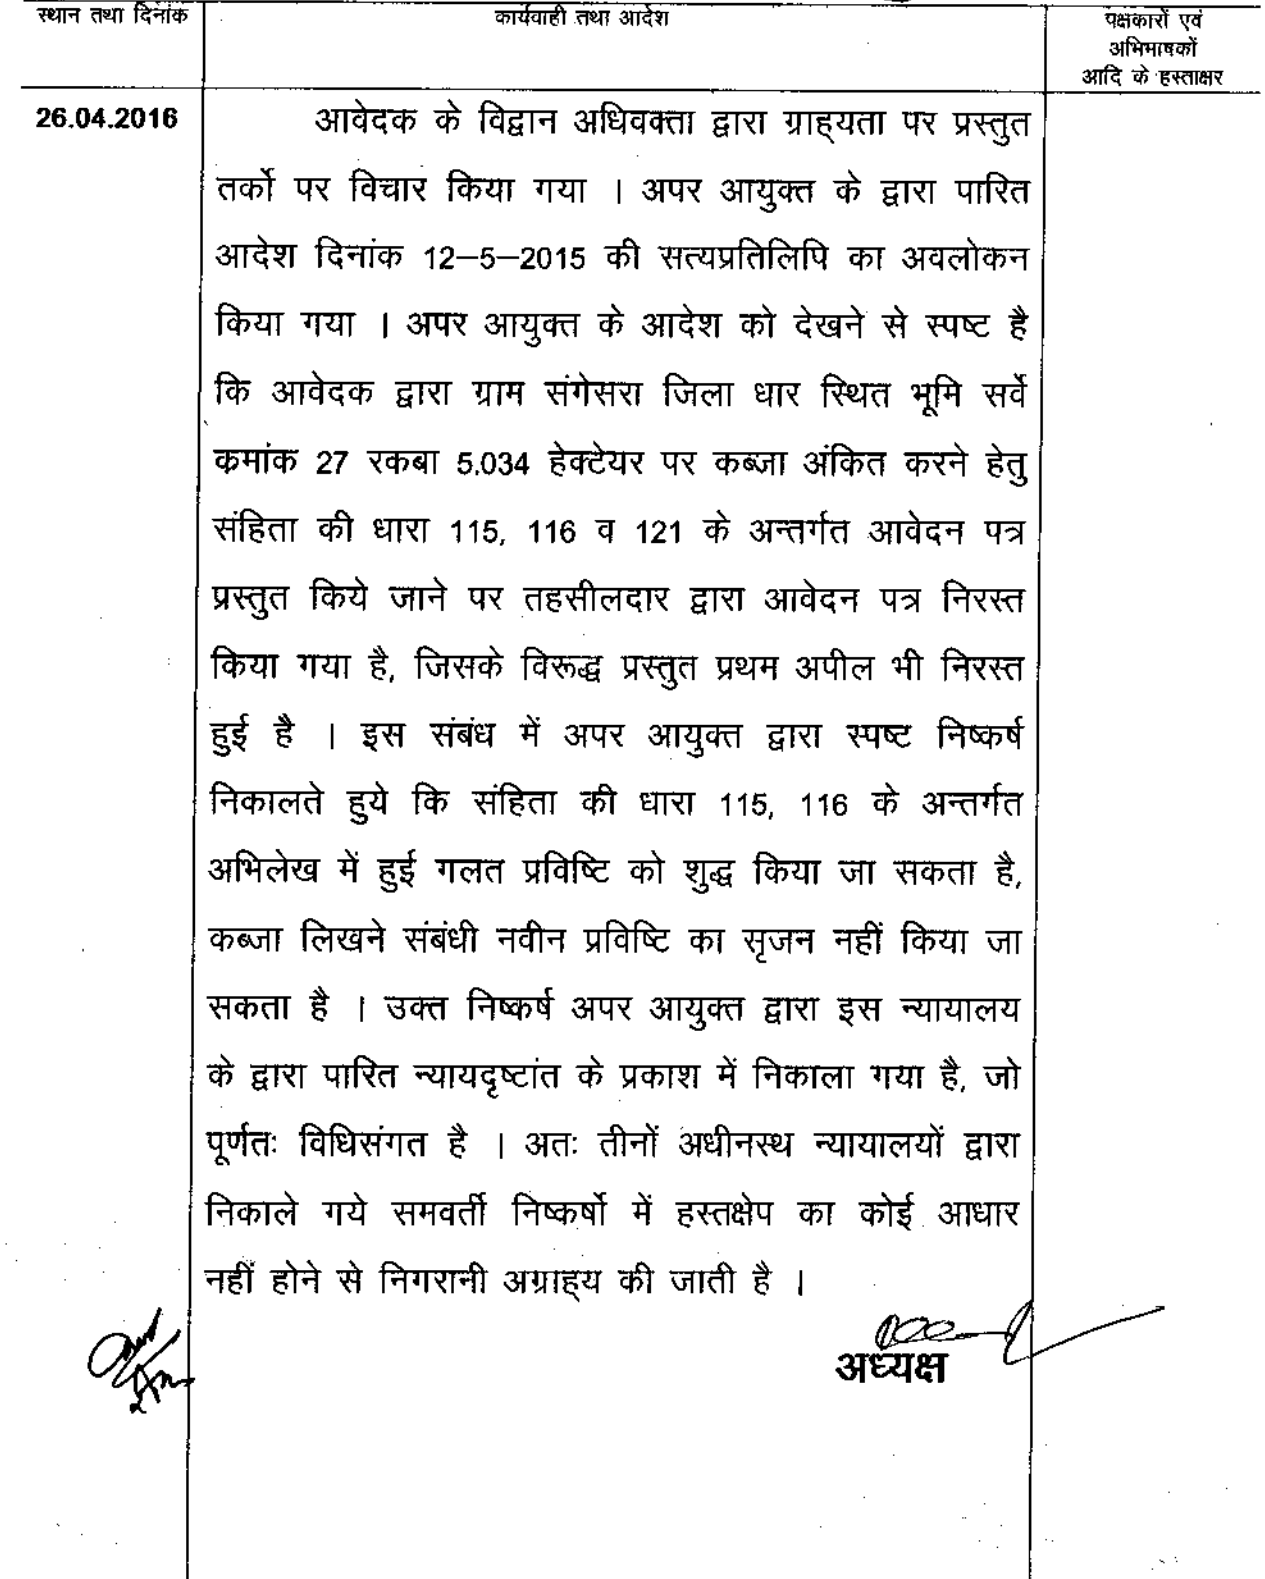 स्थान तथा दिनांक
कार्यवाही तथा आदेश
पक्षकारों एवं
अभिभाषकों
आदि के हस्ताक्षर
26.04.2016
आवेदक के विद्वान अधिवक्ता द्वारा ग्राह्यता पर प्रस्तुत
तर्को पर विचार किया गया । अपर आयुक्त के द्वारा पारित
आदेश दिनांक 12–5–2015 की सत्यप्रतिलिपि का अवलोकन
किया गया । अपर आयुक्त के आदेश को देखने से स्पष्ट है
कि आवेदक द्वारा ग्राम संगेसरा जिला धार स्थित भूमि सर्वे
कमांक 27 रकबा 5.034 हेक्टेयर पर कब्जा अंकित करने हेतु
संहिता की धारा 115, 116 व 121 के अन्तर्गत आवेदन पत्र
प्रस्तुत किये जाने पर तहसीलदार द्वारा आवेदन पत्र निरस्त
किया गया है, जिसके विरूद्ध प्रस्तुत प्रथम अपील भी निरस्त
हुई है । इस संबंध में अपर आयुक्त द्वारा स्पष्ट निष्कर्ष
निकालते हुये कि संहिता की धारा 115, 116 के अन्तर्गत
अभिलेख में हुई गलत प्रविष्टि को शुद्ध किया जा सकता है,
कब्जा लिखने संबंधी नवीन प्रविष्टि का सृजन नहीं किया जा
सकता है । उक्त निष्कर्ष अपर आयुक्त द्वारा इस न्यायालय
के द्वारा पारित न्यायदृष्टांत के प्रकाश में निकाला गया है, जो
पूर्णतः विधिसंगत है । अतः तीनों अधीनस्थ न्यायालयों द्वारा
निकाले गये समवर्ती निष्कर्षो में हस्तक्षेप का कोई आधार
नहीं होने से निगरानी अग्राह्य की जाती है ।
अध्यक्ष